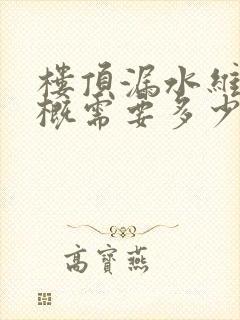 樓頂漏水維
概需要多少
高寶燕